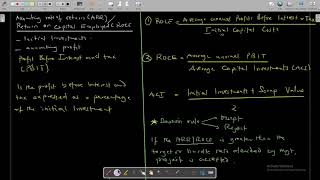 Accounting rate of return (ARR)/
Return on Capital Employed (ROCE)
- Initial Investments
- accounting profit
Profit Before Interest and tax
(PBIT)
Is the profit before interest and
tax expressed as a percentage
of the initial investment
① ROCE = Average annual Profit Before Interest + Tax
Initial Capital Costs
② ROCE = Average annual PBIT
Average Capital Investments (ACI)
ACI = Initial Investment + Scrap Value
2
* Decision rule Accept
Reject
If the ARR/ROCE is greater than the
target or hurdle rate decided by mgt,
project is accepted